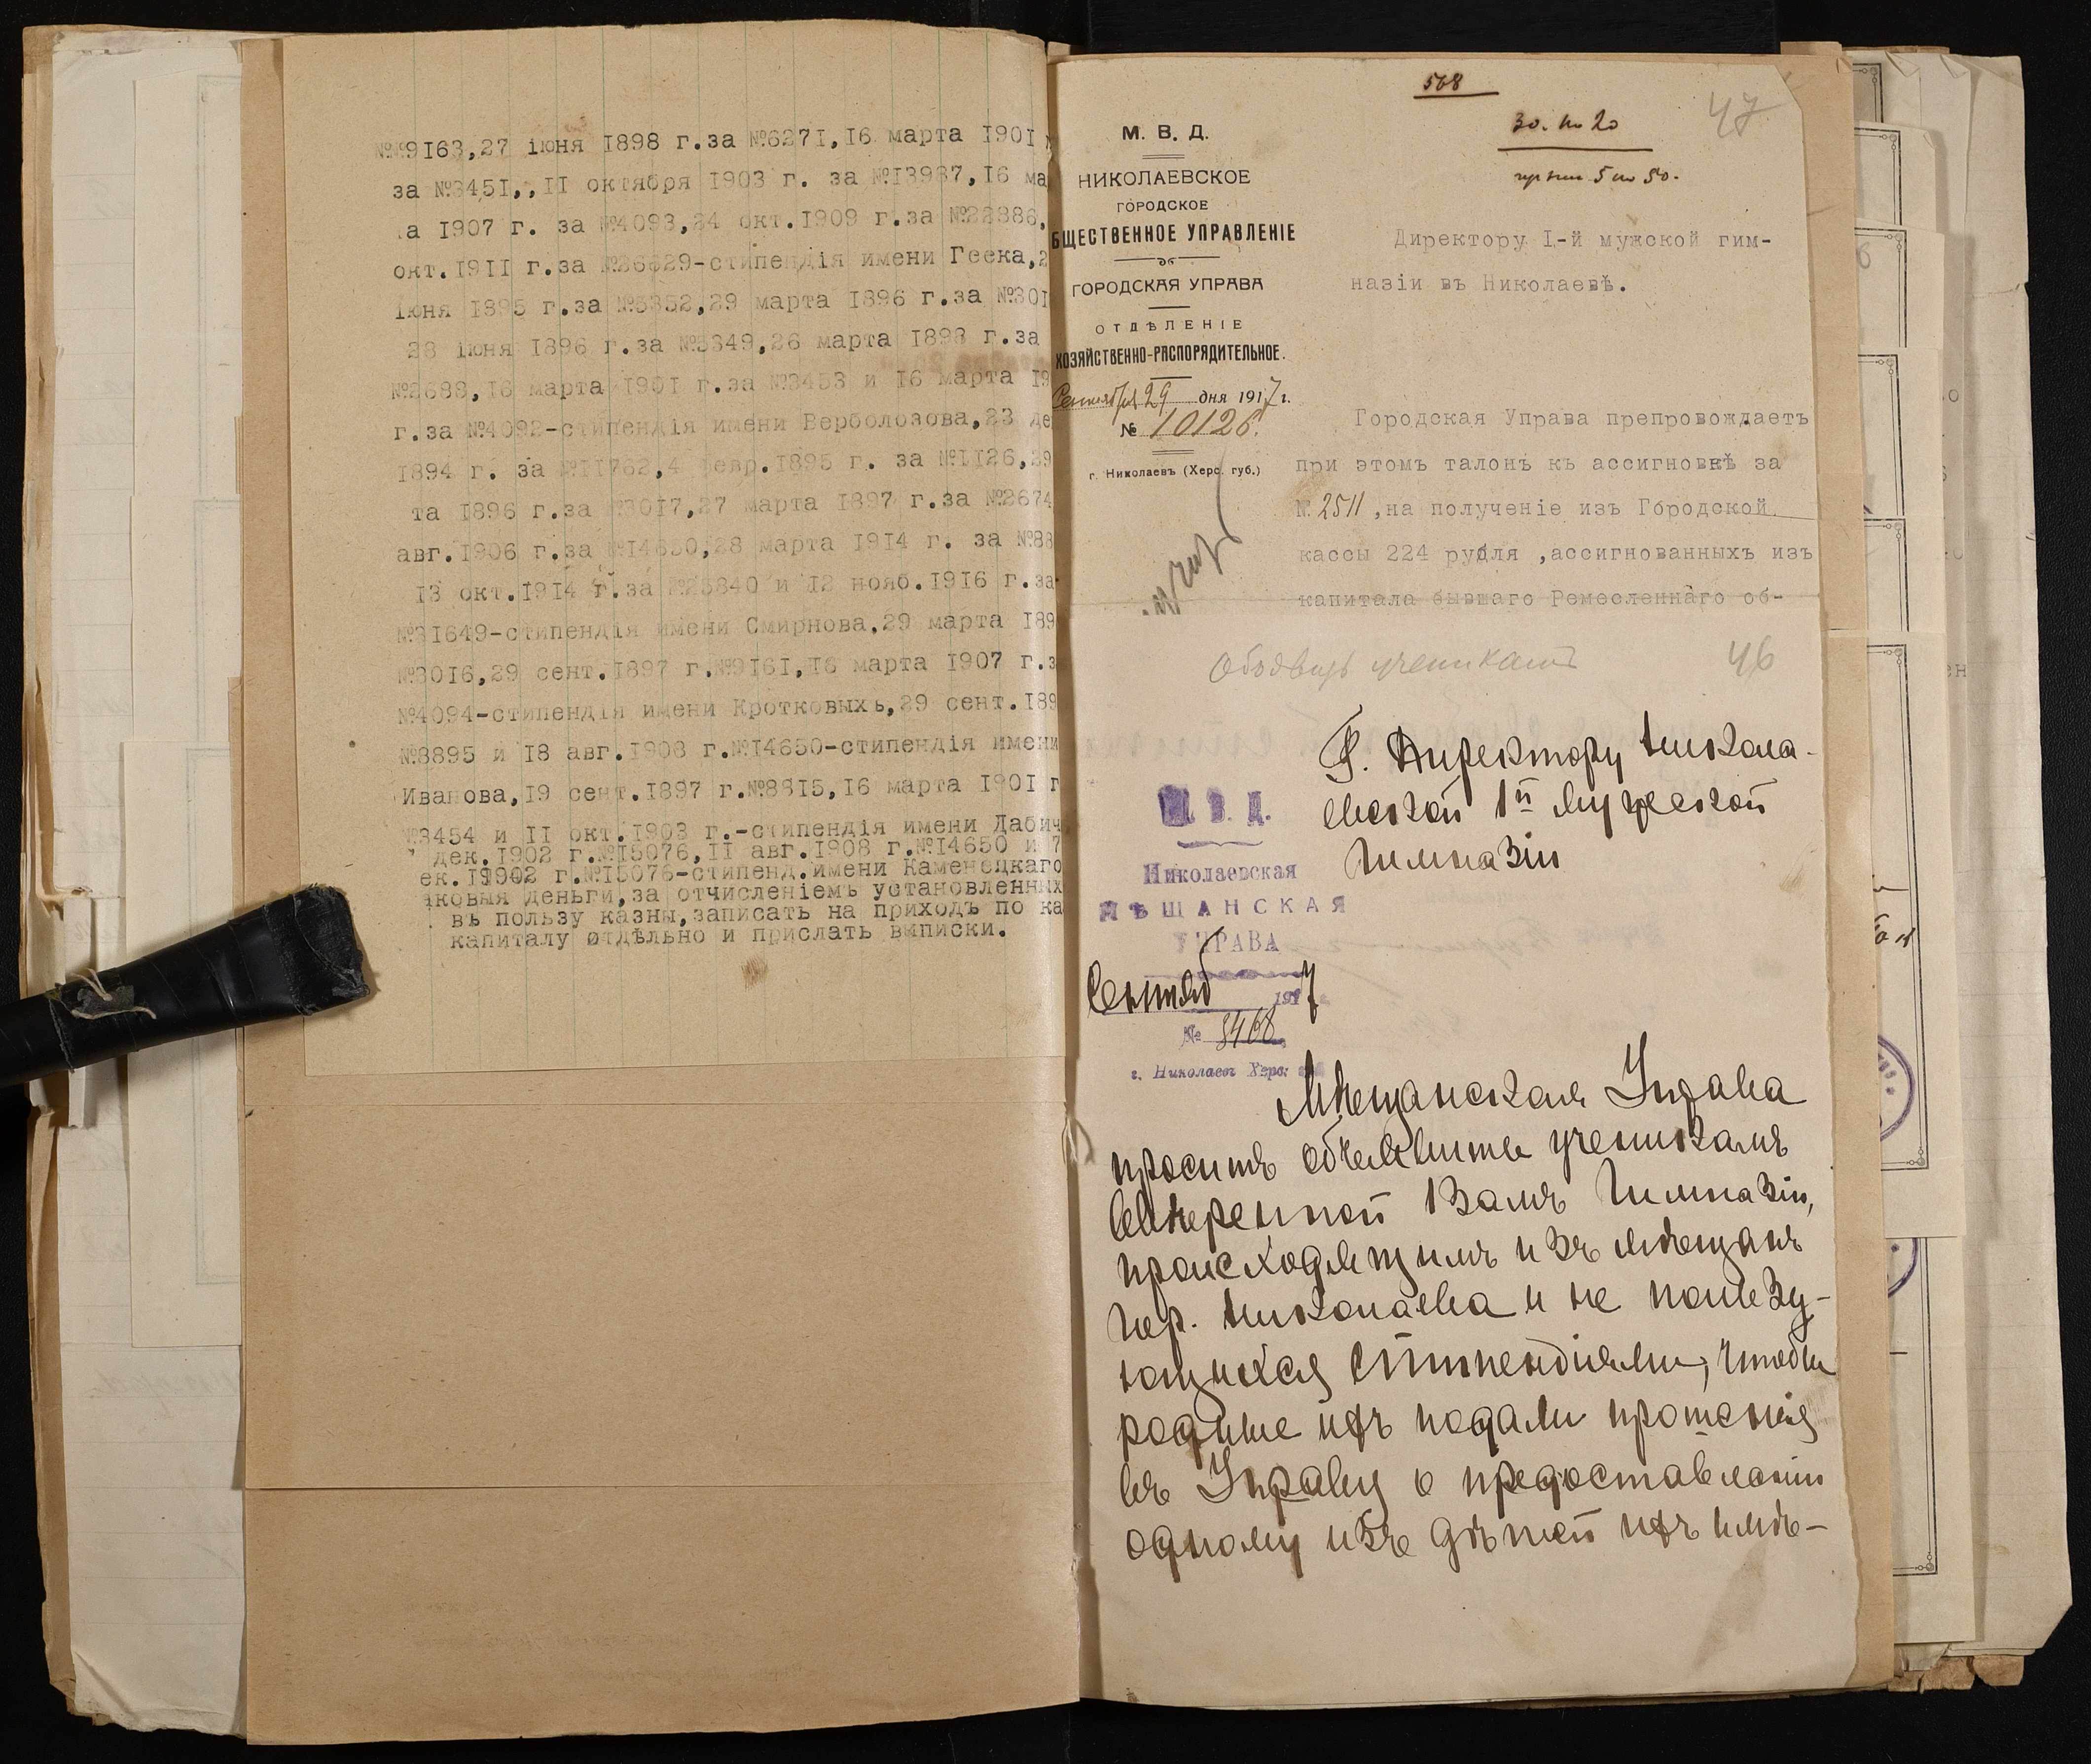 №№9163,27 іюня 1898 г.за №6271,16 марта 1901
за №3451,,11 октября 1903 г. за №13987,16 ма
а 1907 г. за №4093,24 окт.1909 г.за №22386,
окт.1911 г.за №26529-стипендія имени Геека,2
іюня 1895 г.за №5352,29 марта 1896 г.за №301
28 іюня 1896 г.за №5349,26 марта 1898 г.за
№2688,16 марта 1901 г.за №3453 и 16 марта 19
г.за №4092-стипендія имени Верболозова,23 де
1894 г. за №11762,4 февр.1895 г. за №1126,29
та 1896 г.за №3017,27 марта 1897 г.за №2674
авг.1906 г.за №14650,28 марта 1914 г. за №88
13 окт.1914 г.за №25840 и 12 нояб.1916 г.за
№31649-стипендія имени Смирнова,29 марта 189
№3016,29 сент.1897 г.№9161,16 марта 1907 г.з
№4094-стипендія имени Кротковыхъ,29 сент.189
№8895 и 18 авг.1908 г.№14650-стипендія имени
Иванова,19 сент.1897 г.№8815,16 марта 1901 г
№3454 и 11 окт.1903 г.-стипендія имени Дабич
дек.1902 г.№15076,11 авг.1908 г.№14650 и 7
ек.1902 г.№15076-стипенд.имени Каменецкаго
ковыя деньги,за отчисленіемъ установленных
въ пользу казны,записать на приходъ по ка
капиталу отдѣльно и прислать выписки.
568
47
30. по 20
5 по 50.
М. В. Д.
НИКОЛАЕВСКОЕ
ГОРОДСКОЕ
БЩЕСТВЕННОЕ УПРАВЛЕНІЕ
ГОРОДСКАЯ УПРАВА
ОТДѢЛЕНІЕ
ХОЗЯЙСТВЕННО-РАСПОРЯДИТЕЛЬНОЕ.
Сентября 29 дня 1917 г.
№ 10126.
г. Николаевъ (Херс. губ.)
Директору I-й мужской гим-
назіи въ Николаевѣ.
Городская Управа препровождаетъ
при этомъ талонъ къ ассигновкѣ за
№ 2511 ,на полученіе изъ Городской
кассы 224 рубля ,ассигнованныхъ изъ
капитала бывшаго Ремесленнаго об-
Объявить ученикамъ
46
М. В. Д.
Николаевская
МѢЩАНСКАЯ
УПРАВА
Сентяб 1917
№ 3468
г. Николаевъ Херс.
Г. Директору Никола-
евской 1й мужской
Гимназіи
Мѣщанская Управа
проситъ объявить ученикамъ
ввѣренной Вамъ Гимназіи,
происходящимъ изъ мѣщанъ
гор. Николаева и не пользу-
ющихся стипендіями, чтобы
родные ихъ подали прошенія
въ Управу о предоставленіи
одному изъ дѣтей ихъ имѣ-